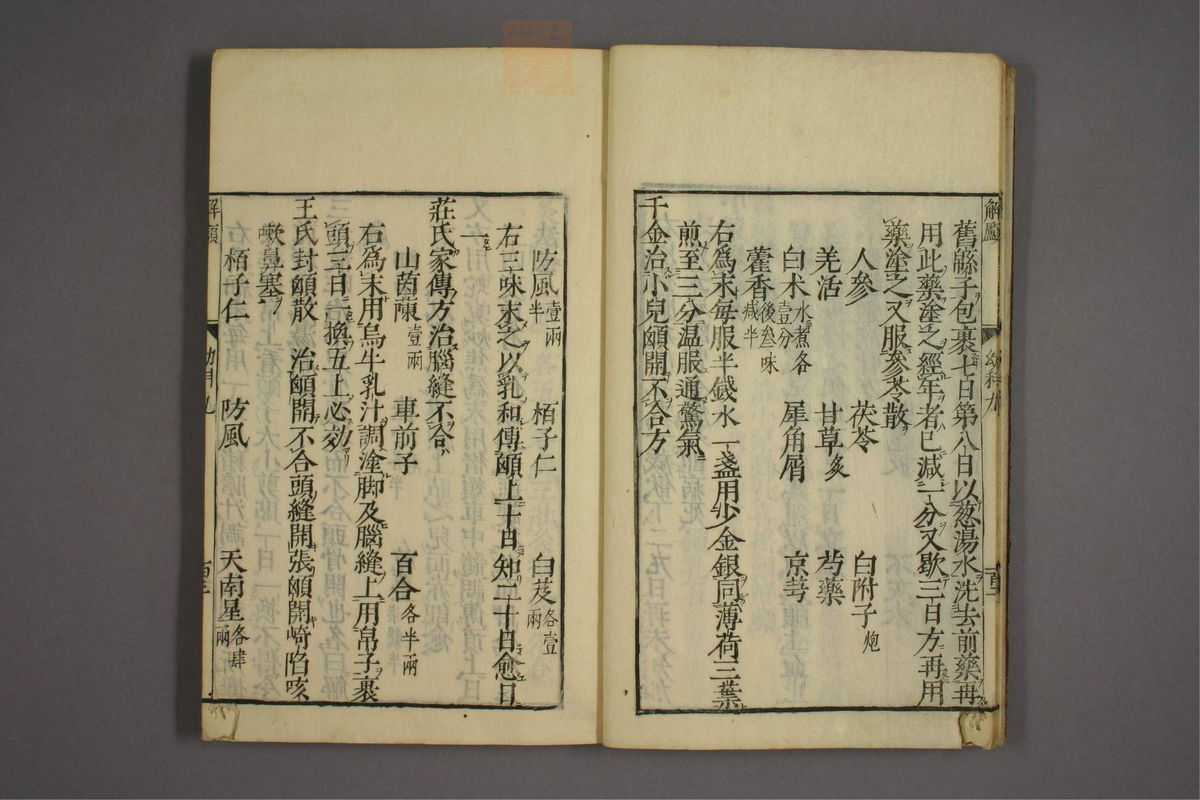 解顱
幼科九
舊緜子包裹七日第八日以葱湯水洗去前藥再
用此藥塗之經年者已減一分又歇三日方再用
藥塗之又服參苓散
人參 茯苓 白附子炮
羌活 甘草炙 芍藥
白术水煮各壹分 犀角屑 京芎
藿香後叁味减半
右爲末每服半錢水一盞用少金銀同薄荷三葉
煎至三分温服通驚氣
千金治小兒顱開不合方
防風壹兩半 栢子仁 白芨各壹兩
右三味末之以乳和傅顱上十日知二十日愈日
一
莊氏家傳方治腦縫不合
山茵蔯壹兩 車前子半 百合各半兩
右爲末用烏牛乳汁調塗脚及腦縫上用帛子裹
頭三日一換五上必効
王氏封顱散 治顱開不合頭縫開張顱開崎陷咳
嗽鼻塞
栢子仁 防風 天南星各肆兩
解顱
幼科九